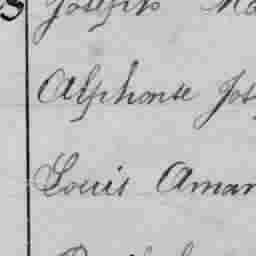 Joseph Ma
Alphonse Jos
Louis Aman